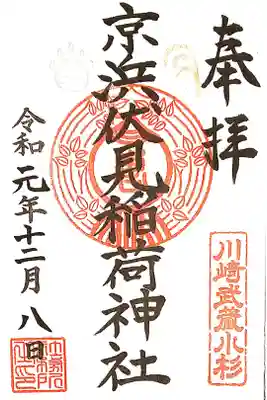 奉拝
川崎武蔵小杉
京浜伏見稲荷神社
令和元年十二月八日